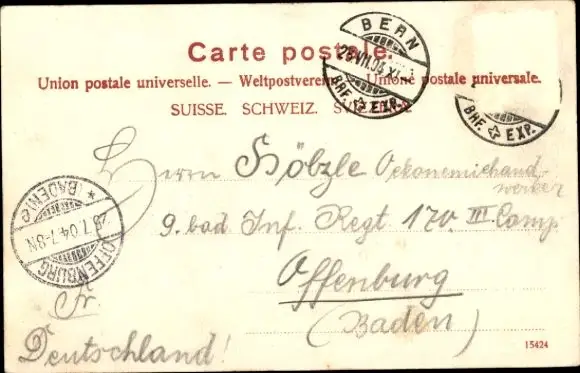 Carte postale.
Union postale universelle. — Weltpostverein. — Unione postale universale.
SUISSE. SCHWEIZ. SVIZZERA
BERN
BHF. EXP.
BHF. EXP.
Herrn Hölzle Oekonomichand-
werker
9. bad Inf. Regt 170 III Comp
Offenburg
(Baden)
Fr.
Deutschland!
OFFENBURG
7-8N
(BADEN)
15424